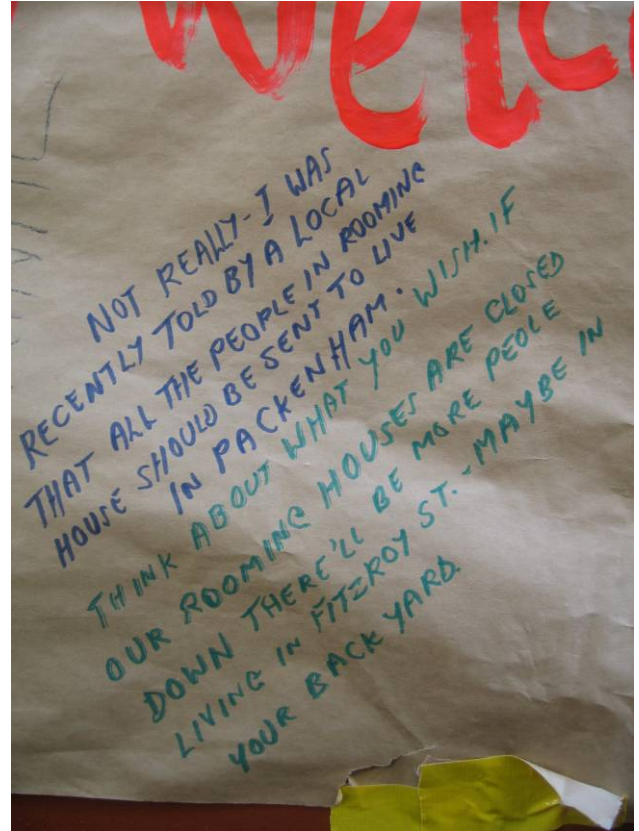 Welc
NOT REALLY - I WAS
RECENTLY TOLD BY A LOCAL
THAT ALL THE PEOPLE IN ROOMING
HOUSE SHOULD BE SENT TO LIVE
IN PACKENHAM.
THINK ABOUT WHAT YOU WISH. IF
OUR ROOMING HOUSES ARE CLOSED
DOWN THERE'LL BE MORE PEOLE
LIVING IN FITZROY ST. - MAYBE IN
YOUR BACK YARD.